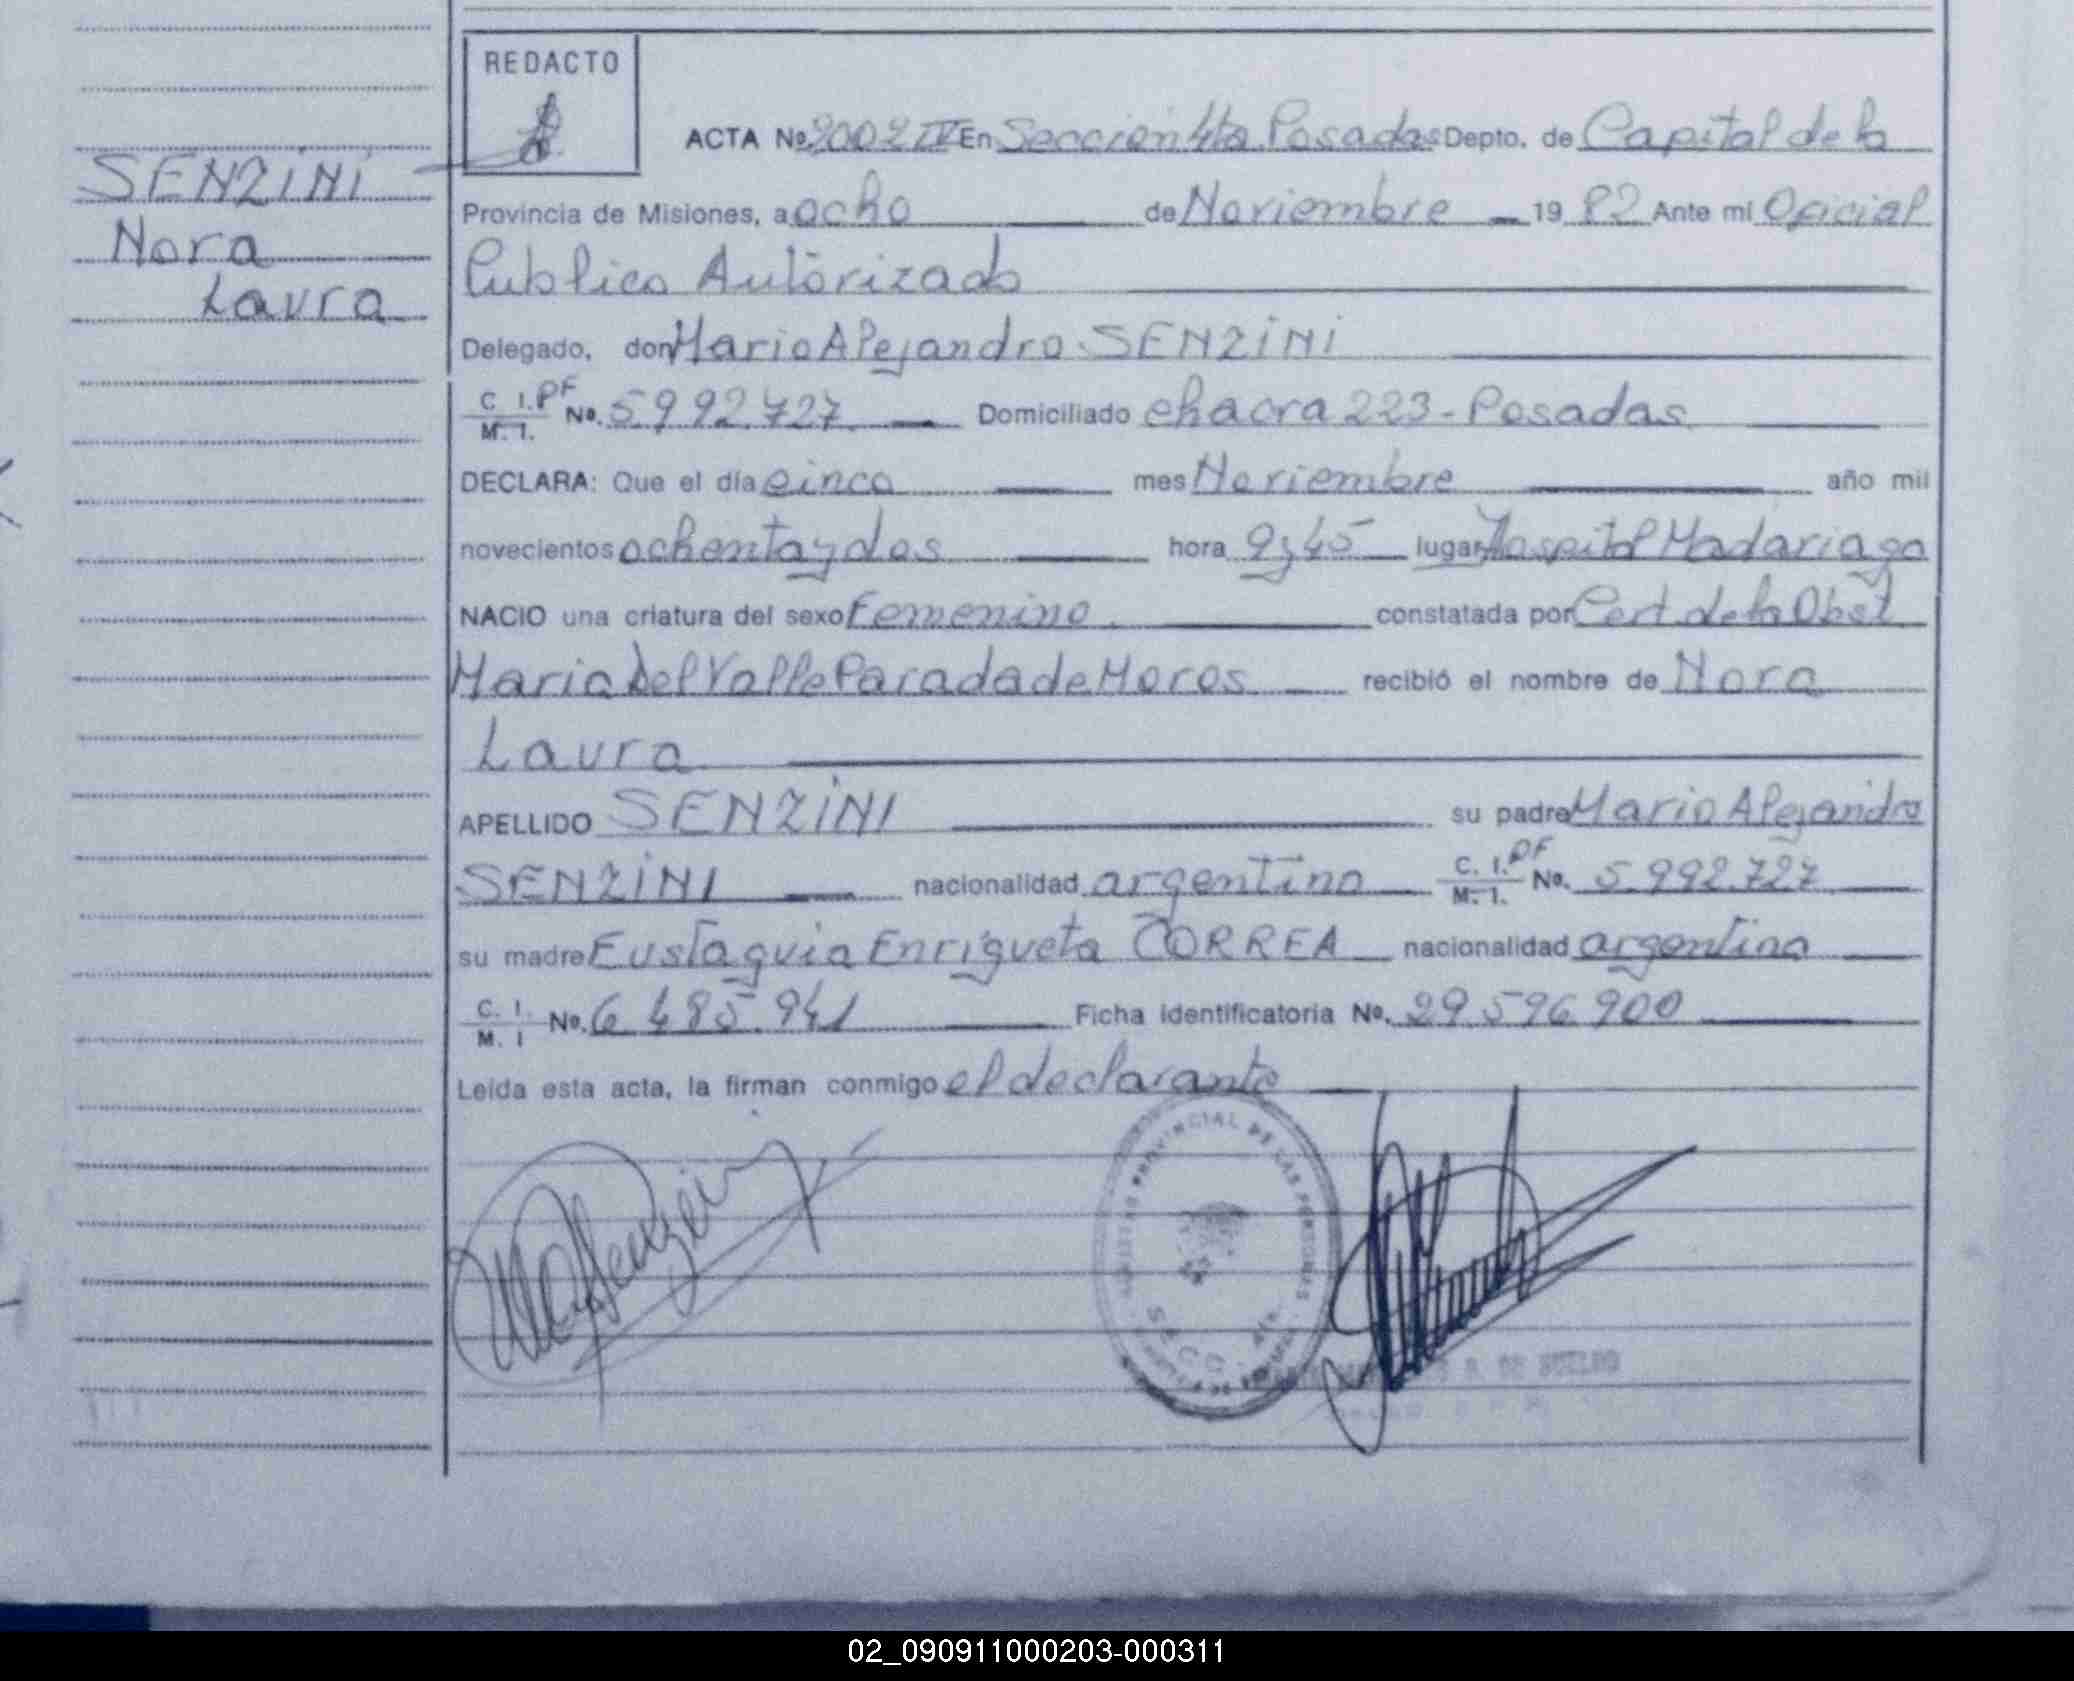 REDACTO
SENZiNi
Nora
Laura
ACTA Nº 2002 IV En Sección 4ta Posadas Depto. de Capital de la
Provincia de Misiones, a ocho de Noviembre 19 82 Ante mi Oficial
Publico Autorizado
Delegado, don Mario Alejandro SENZiNi
C I. PF
M. I. Nº. 5.992.727 Domiciliado chacra 223 - Posadas
DECLARA: Que el día cinco mes Noviembre año mil
novecientos ochenta y dos hora 9,45 lugar Hospital Madariaga
NACIO una criatura del sexo Femenino constatada por Cert. de la Obst
Maria Del Valle Parada de Moros recibió el nombre de Nora
Laura
APELLIDO SENZiNi su padre Mario Alejandro
SENZiNi nacionalidad argentina C. I. PF
M. I. Nº. 5.992.727
su madre Eustaquia Enriqueta CORREA nacionalidad argentina
C. I.
M. I Nº. 6.485.941 Ficha identificatoria Nº. 29.596.900
Leída esta acta, la firman conmigo el declarante
PROVINCIAL DE LAS PERSONAS
02_090911000203-000311